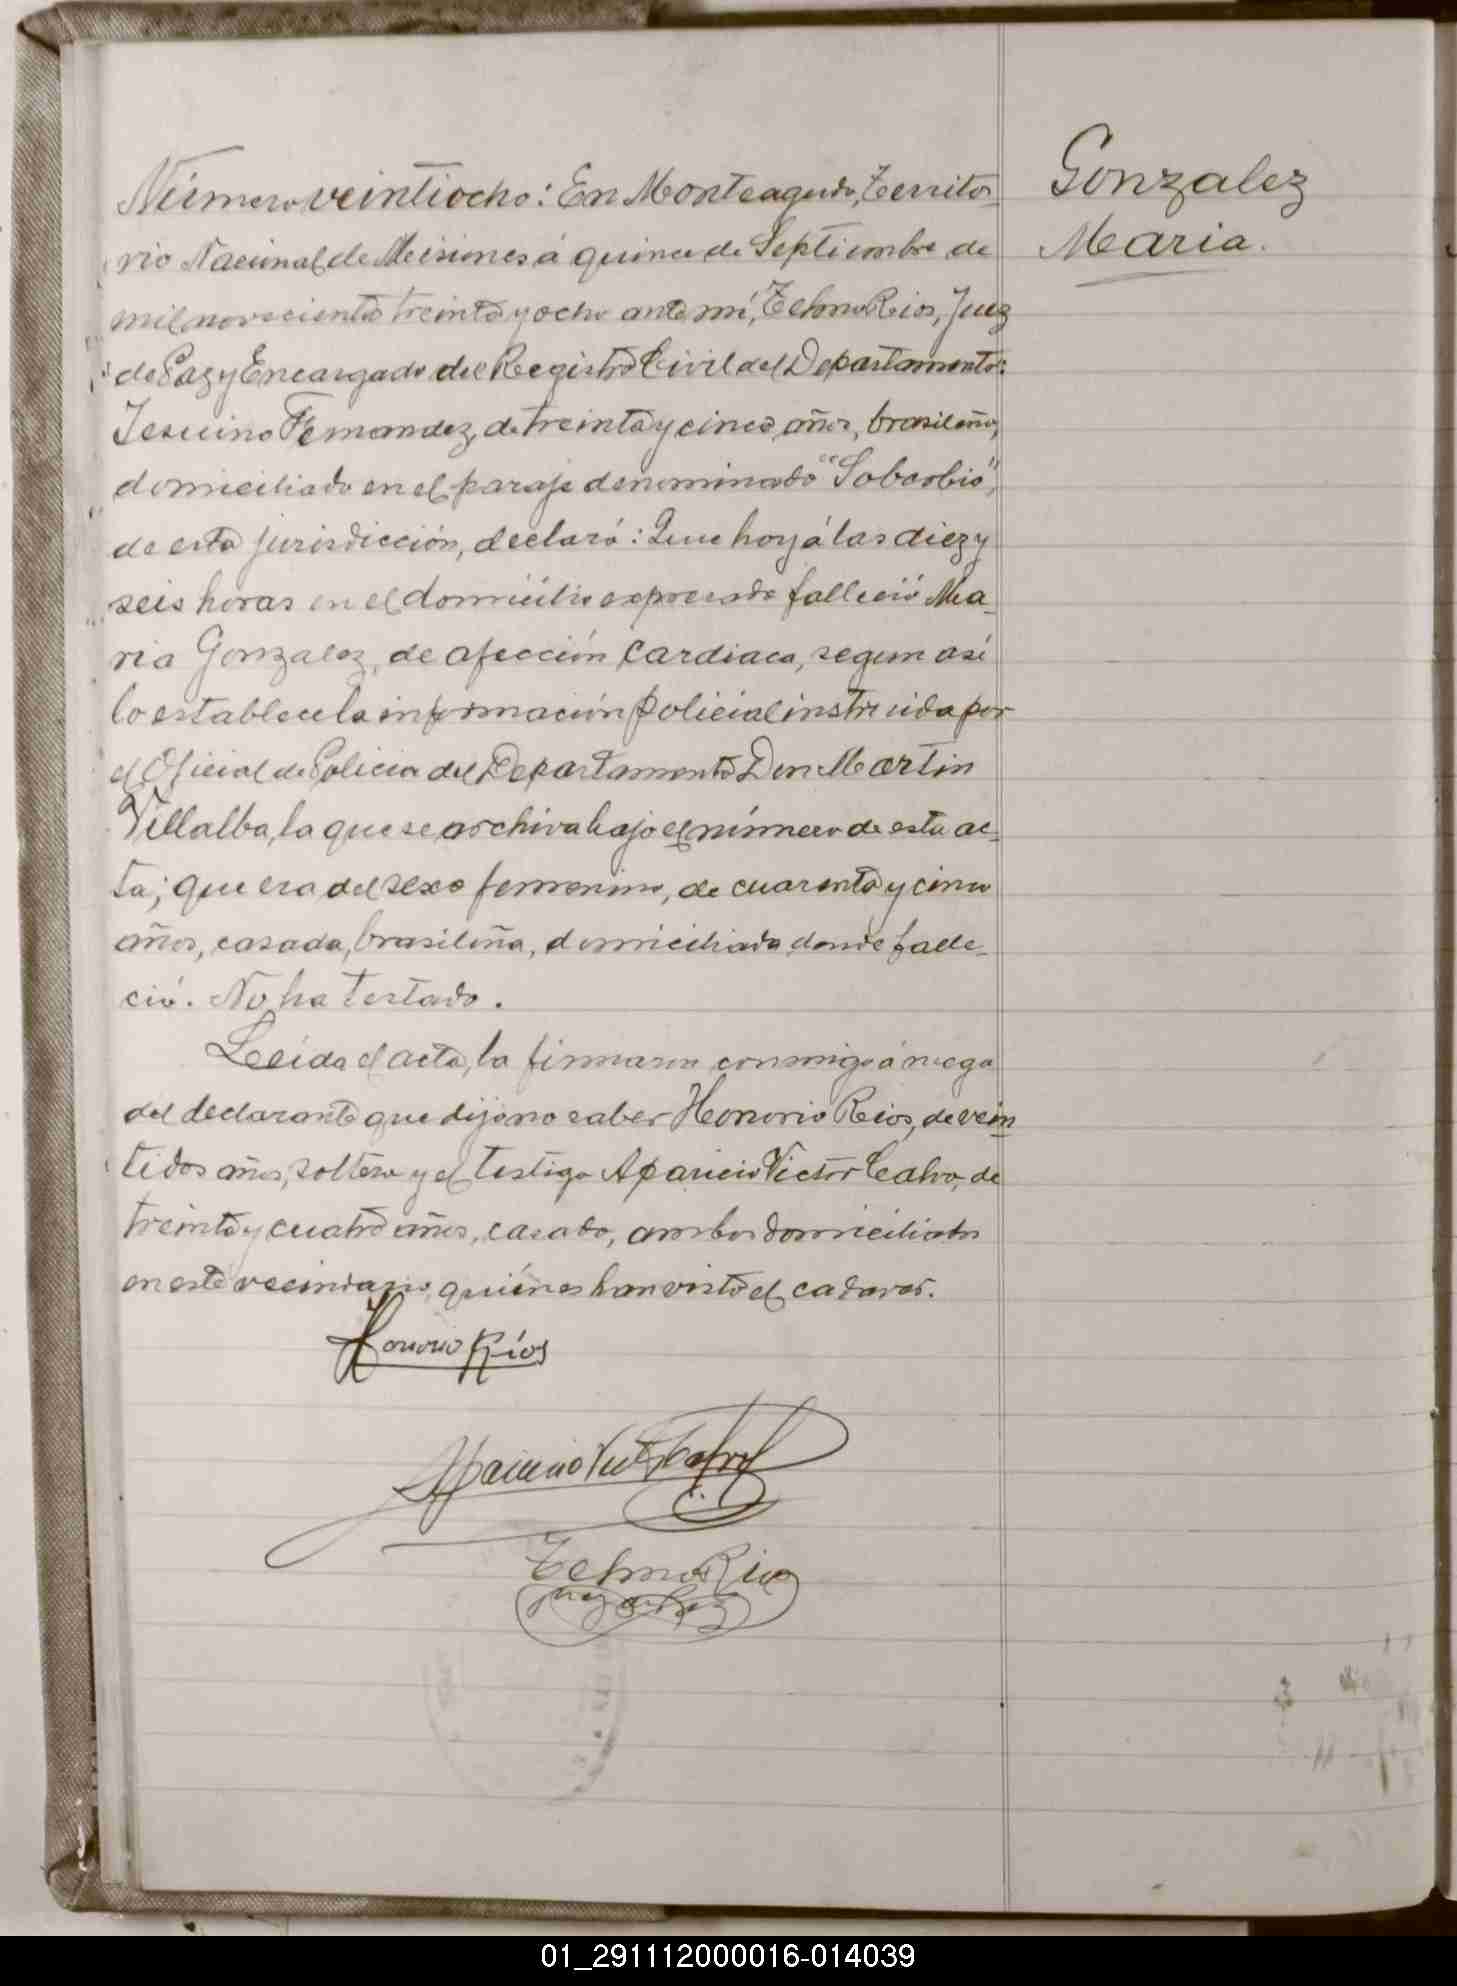 Número veintiocho: En Monteagudo, Territo-
rio Nacional de Misiones á quince de Septiembre de
mil novecientos treinta y ocho ante mí, Telmo Rios, Juez
de Paz y Encargado del Registro Civil del Departamento:
Jesuino Fernandez, de treinta y cinco años, brasileño,
domiciliado en el paraje denominado "Soberbio",
de esta jurisdicción, declaró: Que hoy á las diez y
seis horas en el domicilio expresado falleció Ma-
ria Gonzalez, de afección cardiaca, segun asi
lo establece la información policial instruida por
el Oficial de Policia del Departamento Don Martin
Villalba, la que se archiva bajo el número de esta ac-
ta; que era del sexo femenino, de cuarenta y cinco
años, casada, brasileña, domiciliada donde falle-
ció. No ha testado.
Leida el acta, la firmaron conmigo á ruego
del declarante que dijo no saber Honorio Rios, de vein-
tidos años, soltero y el testigo Aparicio Victor Calvo, de
treinta y cuatro años, casado, ambos domiciliados
en este vecindario, quiénes han visto el cadaver.
Honorio Ríos
Aparicio Victor Calvo
Telmo Rios
Juez de Paz
Gonzalez
Maria.
01_291112000016-014039